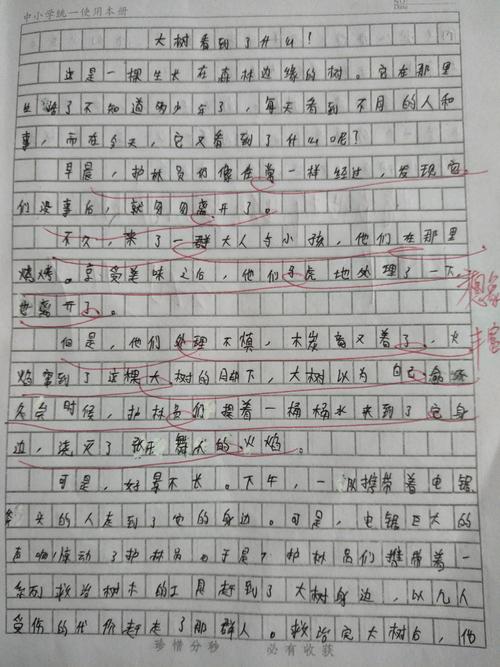 中小学统一使用本册
NO.
Date
大树看到了什么？
这是一棵生长在森林边缘的树。它在那里
生活了不知道多少年了，每天看到不同的人和
事，而在今天，它又看到了什么呢？
早晨，护林员们像往常一样经过，发现它
们没事后，就匆匆离开了。
不久，来了一群大人与小孩，他们在那里
烧烤。享受美味之后，他们马虎地处理了一下
就离开了。
但是，他们处理不慎，木炭着了，火
焰窜到了这棵大树的脚下，大树以为自己
时候，护林员们提着一桶桶水来到了它身
边，浇灭了张牙舞爪的火焰。
可是，好景不长。下午，一队携带着电锯
的人走到了它的身边。可是，电锯巨大的
声响惊动了护林员。于是，护林员们携带着一
系列救治树木的工具赶到了大树身边，以几人
受伤的代价赶走了那群人。救治完大树后，他
想象
丰富
珍惜分秒
必有收获